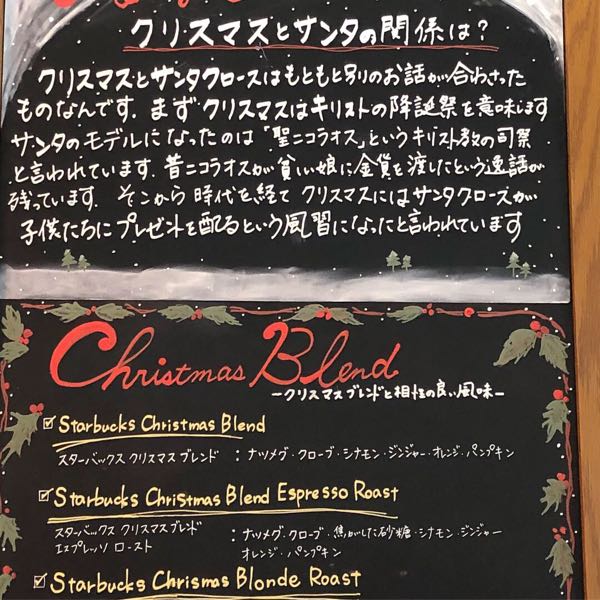 クリスマスとサンタの関係は？
クリスマスとサンタクロースはもともと別のお話が合わさった
ものなんです。まずクリスマスはキリストの降誕祭を意味します
サンタのモデルになったのは「聖ニコラオス」というキリスト教の司祭
と言われています。昔ニコラオスが貧しい娘に金貨を渡したという逸話が
残っています。そこから時代を経てクリスマスにはサンタクロースが
子供たちにプレゼントを配るという風習になったと言われています
Christmas Blend
ークリスマスブレンドと相性の良い風味ー
☑ Starbucks Christmas Blend
スターバックス クリスマス ブレンド : ナツメグ・クローブ・シナモン・ジンジャー・オレンジ・パンプキン
☑ Starbucks Christmas Blend Espresso Roast
スターバックス クリスマスブレンド : ナツメグ・クローブ・焦がした砂糖・シナモン・ジンジャー
エスプレッソ ロースト オレンジ・パンプキン
☑ Starbucks Chrismas Blonde Roast